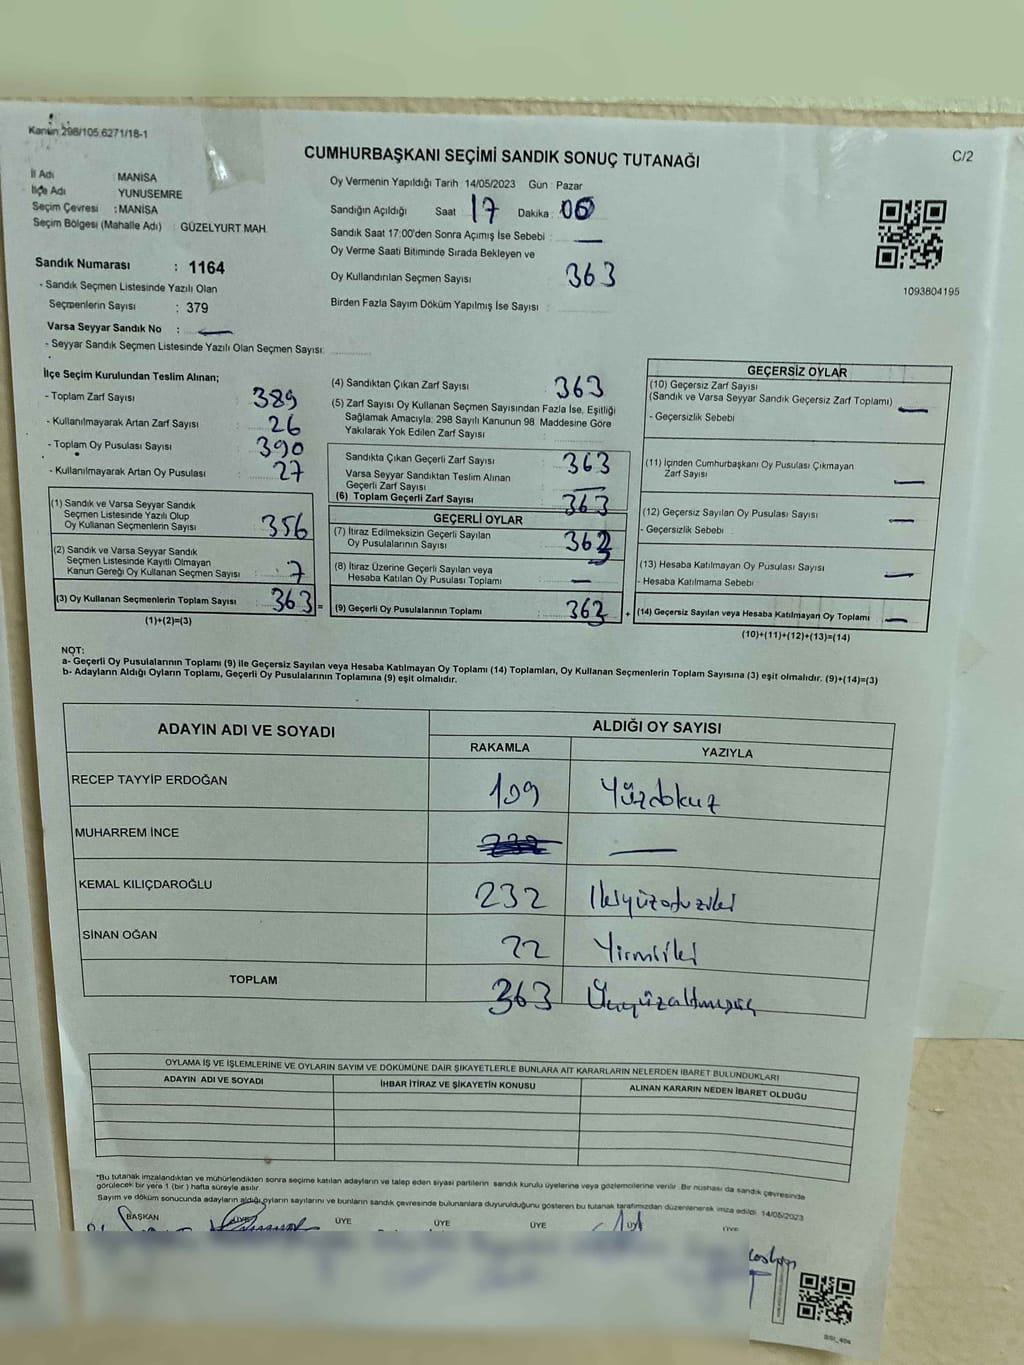 Kanun:298/105.6271/18-1
CUMHURBAŞKANI SEÇİMİ SANDIK SONUÇ TUTANAĞI
C/2
İl Adı : MANİSA
İlçe Adı : YUNUSEMRE
Seçim Çevresi : MANİSA
Seçim Bölgesi (Mahalle Adı) : GÜZELYURT MAH.
Oy Vermenin Yapıldığı Tarih 14/05/2023 Gün Pazar
Sandığın Açıldığı Saat 17 Dakika : 00
Sandık Saat 17:00'den Sonra Açımış İse Sebebi : —
Oy Verme Saati Bitiminde Sırada Bekleyen ve
Oy Kullandırılan Seçmen Sayısı 363
Birden Fazla Sayım Döküm Yapılmış İse Sayısı :
1093804195
Sandık Numarası : 1164
- Sandık Seçmen Listesinde Yazılı Olan
Seçmenlerin Sayısı : 379
Varsa Seyyar Sandık No : —
- Seyyar Sandık Seçmen Listesinde Yazılı Olan Seçmen Sayısı:
İlçe Seçim Kurulundan Teslim Alınan;
- Toplam Zarf Sayısı : 389
- Kullanılmayarak Artan Zarf Sayısı : 26
- Toplam Oy Pusulası Sayısı : 390
- Kullanılmayarak Artan Oy Pusulası : 27
(1) Sandık ve Varsa Seyyar Sandık
Seçmen Listesinde Yazılı Olup
Oy Kullanan Seçmenlerin Sayısı 356
(2) Sandık ve Varsa Seyyar Sandık
Seçmen Listesinde Kayıtlı Olmayan
Kanun Gereği Oy Kullanan Seçmen Sayısı : 7
(3) Oy Kullanan Seçmenlerin Toplam Sayısı : 363 =
(1)+(2)=(3)
(4) Sandıktan Çıkan Zarf Sayısı 363
(5) Zarf Sayısı Oy Kullanan Seçmen Sayısından Fazla İse, Eşitliği
Sağlamak Amacıyla; 298 Sayılı Kanunun 98 Maddesine Göre
Yakılarak Yok Edilen Zarf Sayısı :
Sandıkta Çıkan Geçerli Zarf Sayısı : 363
Varsa Seyyar Sandıktan Teslim Alınan
Geçerli Zarf Sayısı : —
(6) Toplam Geçerli Zarf Sayısı 363
GEÇERLİ OYLAR
(7) İtiraz Edilmeksizin Geçerli Sayılan
Oy Pusulalarının Sayısı : 363
(8) İtiraz Üzerine Geçerli Sayılan veya
Hesaba Katılan Oy Pusulası Toplamı : —
(9) Geçerli Oy Pusulalarının Toplamı : 363 +
GEÇERSİZ OYLAR
(10) Geçersiz Zarf Sayısı
(Sandık ve Varsa Seyyar Sandık Geçersiz Zarf Toplamı) : —
- Geçersizlik Sebebi
(11) İçinden Cumhurbaşkanı Oy Pusulası Çıkmayan
Zarf Sayısı : —
(12) Geçersiz Sayılan Oy Pusulası Sayısı : —
- Geçersizlik Sebebi
(13) Hesaba Katılmayan Oy Pusulası Sayısı : —
- Hesaba Katılmama Sebebi
(14) Geçersiz Sayılan veya Hesaba Katılmayan Oy Toplamı : —
(10)+(11)+(12)+(13)=(14)
NOT:
a- Geçerli Oy Pusulalarının Toplamı (9) ile Geçersiz Sayılan veya Hesaba Katılmayan Oy Toplamı (14) Toplamları, Oy Kullanan Seçmenlerin Toplam Sayısına (3) eşit olmalıdır. (9)+(14)=(3)
b- Adayların Aldığı Oyların Toplamı, Geçerli Oy Pusulalarının Toplamına (9) eşit olmalıdır.
ADAYIN ADI VE SOYADI
ALDIĞI OY SAYISI
RAKAMLA YAZIYLA
RECEP TAYYİP ERDOĞAN 109 Yüzdokuz
MUHARREM İNCE —
KEMAL KILIÇDAROĞLU 232 İkiyüzotuziki
SİNAN OĞAN 22 Yirmiiki
TOPLAM 363 Üçyüzaltmışüç
OYLAMA İŞ VE İŞLEMLERİNE VE OYLARIN SAYIM VE DÖKÜMÜNE DAİR ŞİKAYETLERLE BUNLARA AİT KARARLARIN NELERDEN İBARET BULUNDUKLARI
ADAYIN ADI VE SOYADI İHBAR İTİRAZ VE ŞİKAYETİN KONUSU ALINAN KARARIN NEDEN İBARET OLDUĞU
*Bu tutanak imzalandıktan ve mühürlendikten sonra seçime katılan adayların ve talep eden siyasi partilerin sandık kurulu üyelerine veya gözlemcilerine verilir. Bir nüshası da sandık çevresinde
görülecek bir yere 1 (bir) hafta süreyle asılır.
Sayım ve döküm sonucunda adayların aldığı oyların sayılarını ve bunların sandık çevresinde bulunanlara duyurulduğunu gösteren bu tutanak tarafımızdan düzenlenerek imza edildi. 14/05/2023
BAŞKAN ÜYE ÜYE ÜYE ÜYE ÜYE